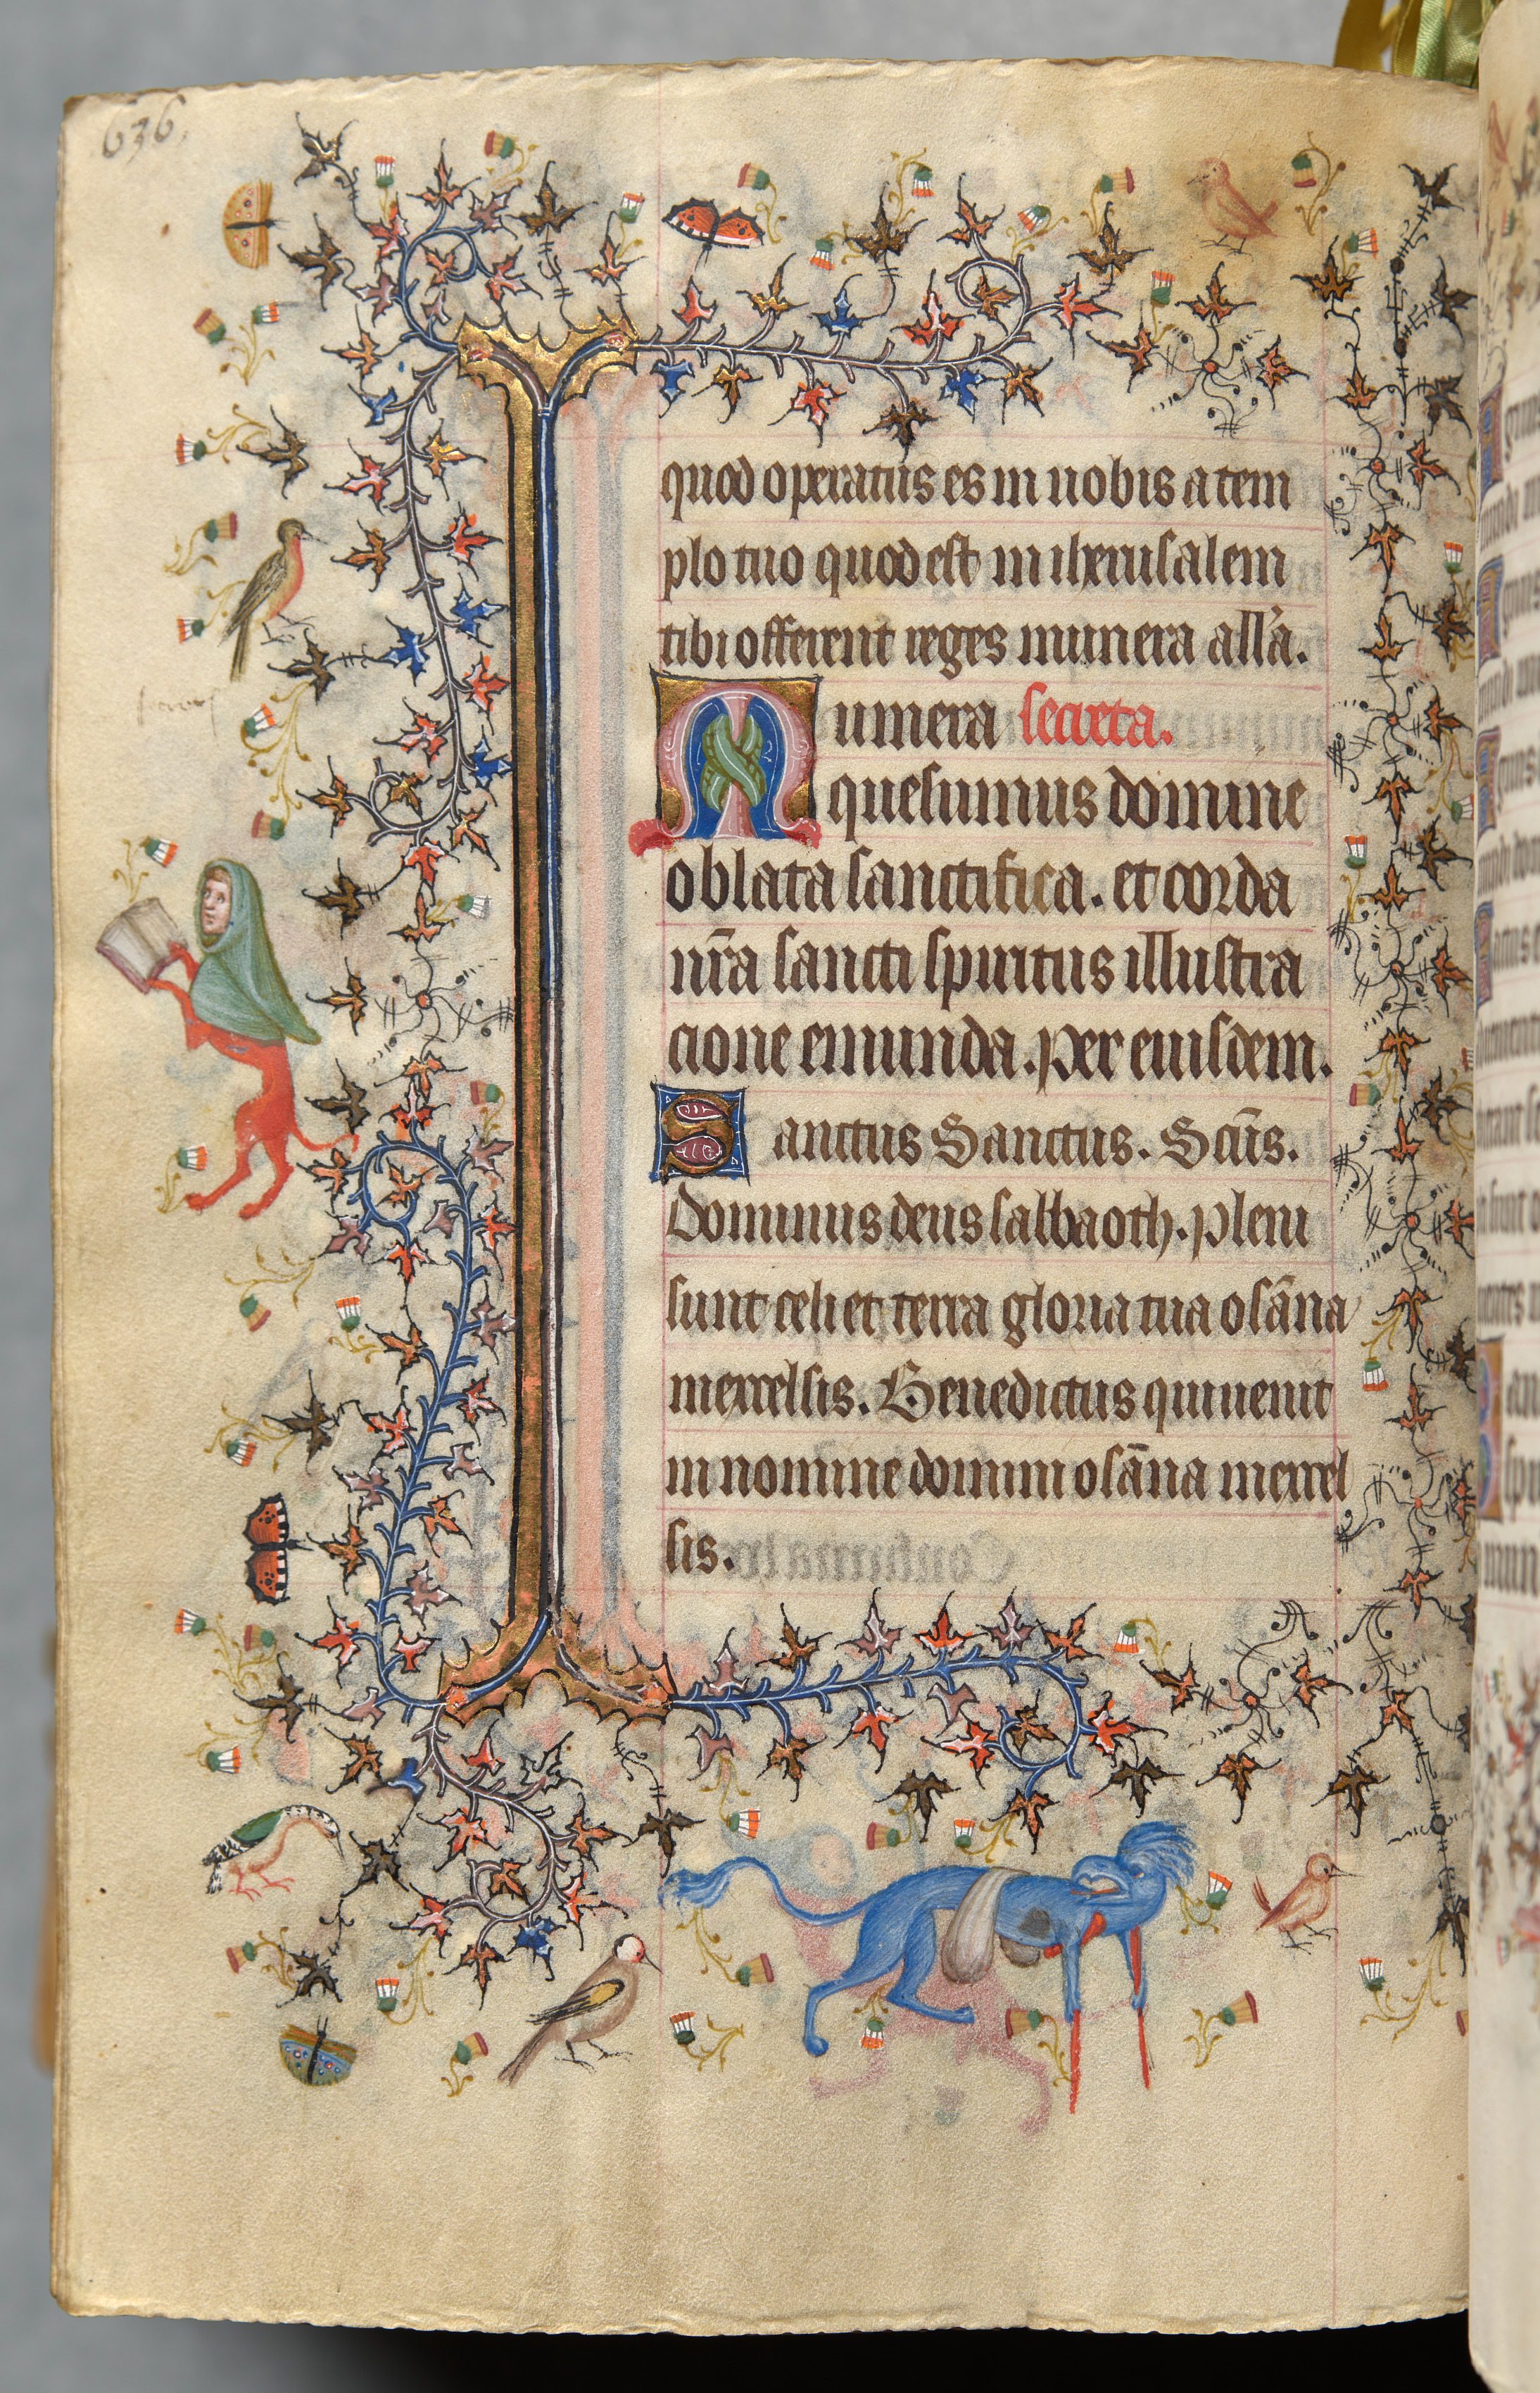 636.
quod operatus es in nobis a tem
plo tuo quod est in iherusalem
tibi offerent reges munera all'a.
Munera secreta.
quesumus domine
oblata sanctifica. et corda
nr̄a sancti spiritus illustra
cione emunda. per eiusdem.
Sanctus Sanctus. Scūs.
dominus deus sabbaoth. pleni
sunt celi et terra gloria tua osāna
in excelsis. Benedictus qui uenit
in nomine domini osāna in excel
sis.